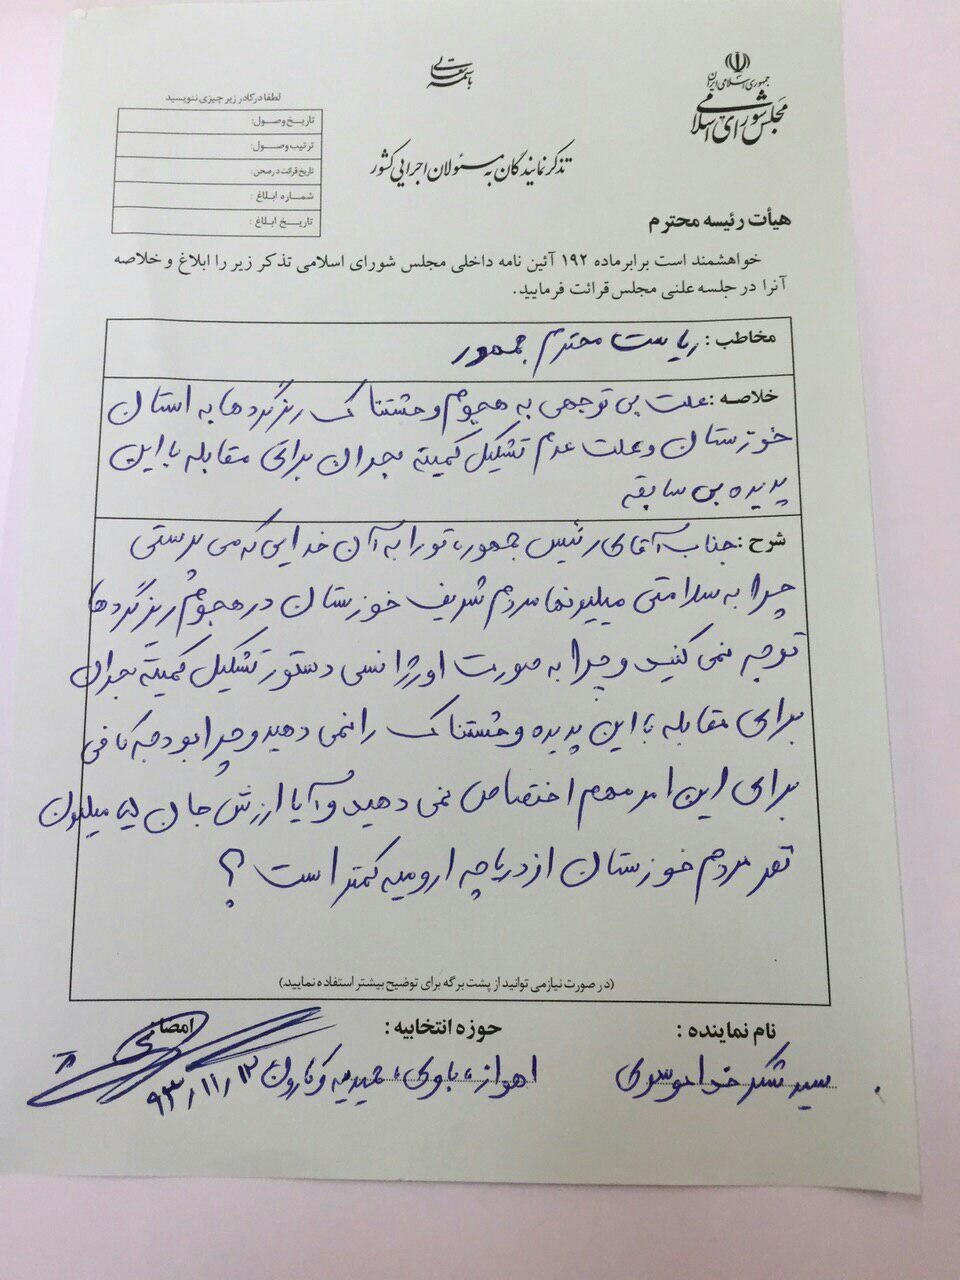 باسمه تعالی
جمهوری اسلامی ایران
مجلس شورای اسلامی
لطفا در کادر زیر چیزی ننویسید
تاریخ وصول:
ترتیب وصول:
تاریخ قرائت در صحن:
شماره ابلاغ :
تاریخ ابلاغ :
تذکر نمایندگان به مسئولان اجرایی کشور
هیأت رئیسه محترم
خواهشمند است برابر ماده ۱۹۲ آئین نامه داخلی مجلس شورای اسلامی تذکر زیر را ابلاغ و خلاصه
آنرا در جلسه علنی مجلس قرائت فرمایید.
مخاطب : ریاست محترم جمهور
خلاصه : علت بی توجهی به هجوم وحشتناک ریزگردها به استان
خوزستان و علت عدم تشکیل کمیته بحران برای مقابله با این
پدیده بی سابقه
شرح : جناب آقای رئیس جمهور، تو را به آن خدایی که می پرستی
چرا به سلامتی میلیونها مردم شریف خوزستان در هجوم ریزگردها
توجه نمی کنید و چرا به صورت اورژانسی دستور تشکیل کمیته بحران
برای مقابله با این پدیده وحشتناک را نمی دهید و چرا بودجه کافی
برای این امر مهم اختصاص نمی دهید و آیا ارزش جان میلیون
نفر مردم خوزستان از دریاچه ارومیه کمتر است ؟
(در صورت نیاز می توانید از پشت برگه برای توضیح بیشتر استفاده نمایید.)
نام نماینده : حوزه انتخابیه : امضاء
سید شکر خدا موسوی اهواز، باوی، حمیدیه و کارون ۹۳/۱۱/۱۳